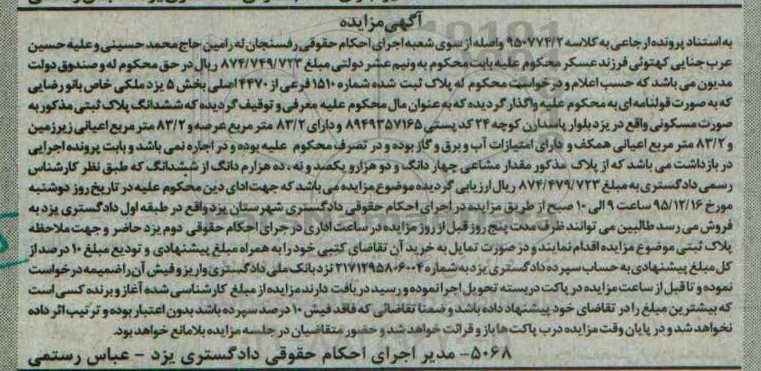 آگهی مزایده
به استناد پرونده ارجاعی به کلاسه ۹۵۰۷۷۴/۲ واصله از سوی شعبه اجرای احکام حقوقی رفسنجان له رامین حاج محمد حسینی و علیه حسین
عرب جنایی کهنوئی فرزند عسکر محکوم علیه بابت محکوم به و نیم عشر دولتی مبلغ ۸۷۴/۷۴۹/۷۲۳ ریال در حق محکوم له و صندوق دولت
مدیون می باشد که حسب اعلام و درخواست محکوم له پلاک ثبت شده شماره ۱۵۱۰ فرعی از ۴۴۷۰ اصلی بخش ۵ یزد ملکی خاص بانو رضایی
که به صورت قولنامه ای به محکوم علیه واگذار گردیده که به عنوان مال محکوم علیه معرفی و توقیف گردیده که ششدانگ پلاک ثبتی مذکور به
صورت مسکونی واقع در یزد بلوار پاسداران کوچه ۲۴ کد پستی ۸۹۴۹۳۵۷۱۶۵ و دارای ۸۳/۲ متر مربع عرصه و ۸۳/۲ متر مربع اعیانی زیرزمین
و ۸۳/۲ متر مربع اعیانی همکف و دارای امتیازات آب و برق و گاز بوده و در تصرف محکوم علیه بوده و در اجاره نمی باشد و بابت پرونده اجرایی
در بازداشت می باشد که از پلاک مذکور مقدار مشاعی چهار دانگ و دو هزار و یکصد و نه، ده هزارم دانگ از ششدانگ که طبق نظر کارشناس
رسمی دادگستری به مبلغ ۸۷۴/۴۷۹/۷۲۳ ریال ارزیابی گردیده موضوع مزایده می باشد که جهت ادای دین محکوم علیه در تاریخ روز دوشنبه
مورخ ۹۵/۱۲/۱۶ ساعت ۹ الی ۱۰ صبح از طریق مزایده در اجرای احکام حقوقی دادگستری شهرستان یزد واقع در طبقه اول دادگستری یزد به
فروش می رسد طالبین می توانند ظرف مدت پنج روز قبل از روز مزایده در ساعت اداری در اجرای احکام حقوقی دوم یزد حاضر و جهت ملاحظه
پلاک ثبتی موضوع مزایده اقدام نمایند و در صورت تمایل به خرید آن تقاضای کتبی خود را به همراه مبلغ پیشنهادی و تودیع مبلغ ۱۰ درصد از
کل مبلغ پیشنهادی به حساب سپرده دادگستری یزد به شماره ۲۱۷۱۲۹۵۸۰۶۰۰۴ نزد بانک ملی دادگستری واریز و فیش آن را ضمیمه درخواست
نموده و تا قبل از ساعت مزایده در پاکت دربسته تحویل اجرا نموده و رسید دریافت دارند مزایده از مبلغ کارشناسی شده آغاز و برنده کسی است
که بیشترین مبلغ را در تقاضای خود پیشنهاد داده باشد و ضمنا تقاضائی که فاقد فیش ۱۰ درصد سپرده باشد بدون اعتبار بوده و ترتیب اثر داده
نخواهد شد و در پایان وقت مزایده درب پاکت ها باز و قرائت خواهد شد و حضور متقاضیان در جلسه مزایده بلامانع خواهد بود.
۵۰۶۸- مدیر اجرای احکام حقوقی دادگستری یزد - عباس رستمی